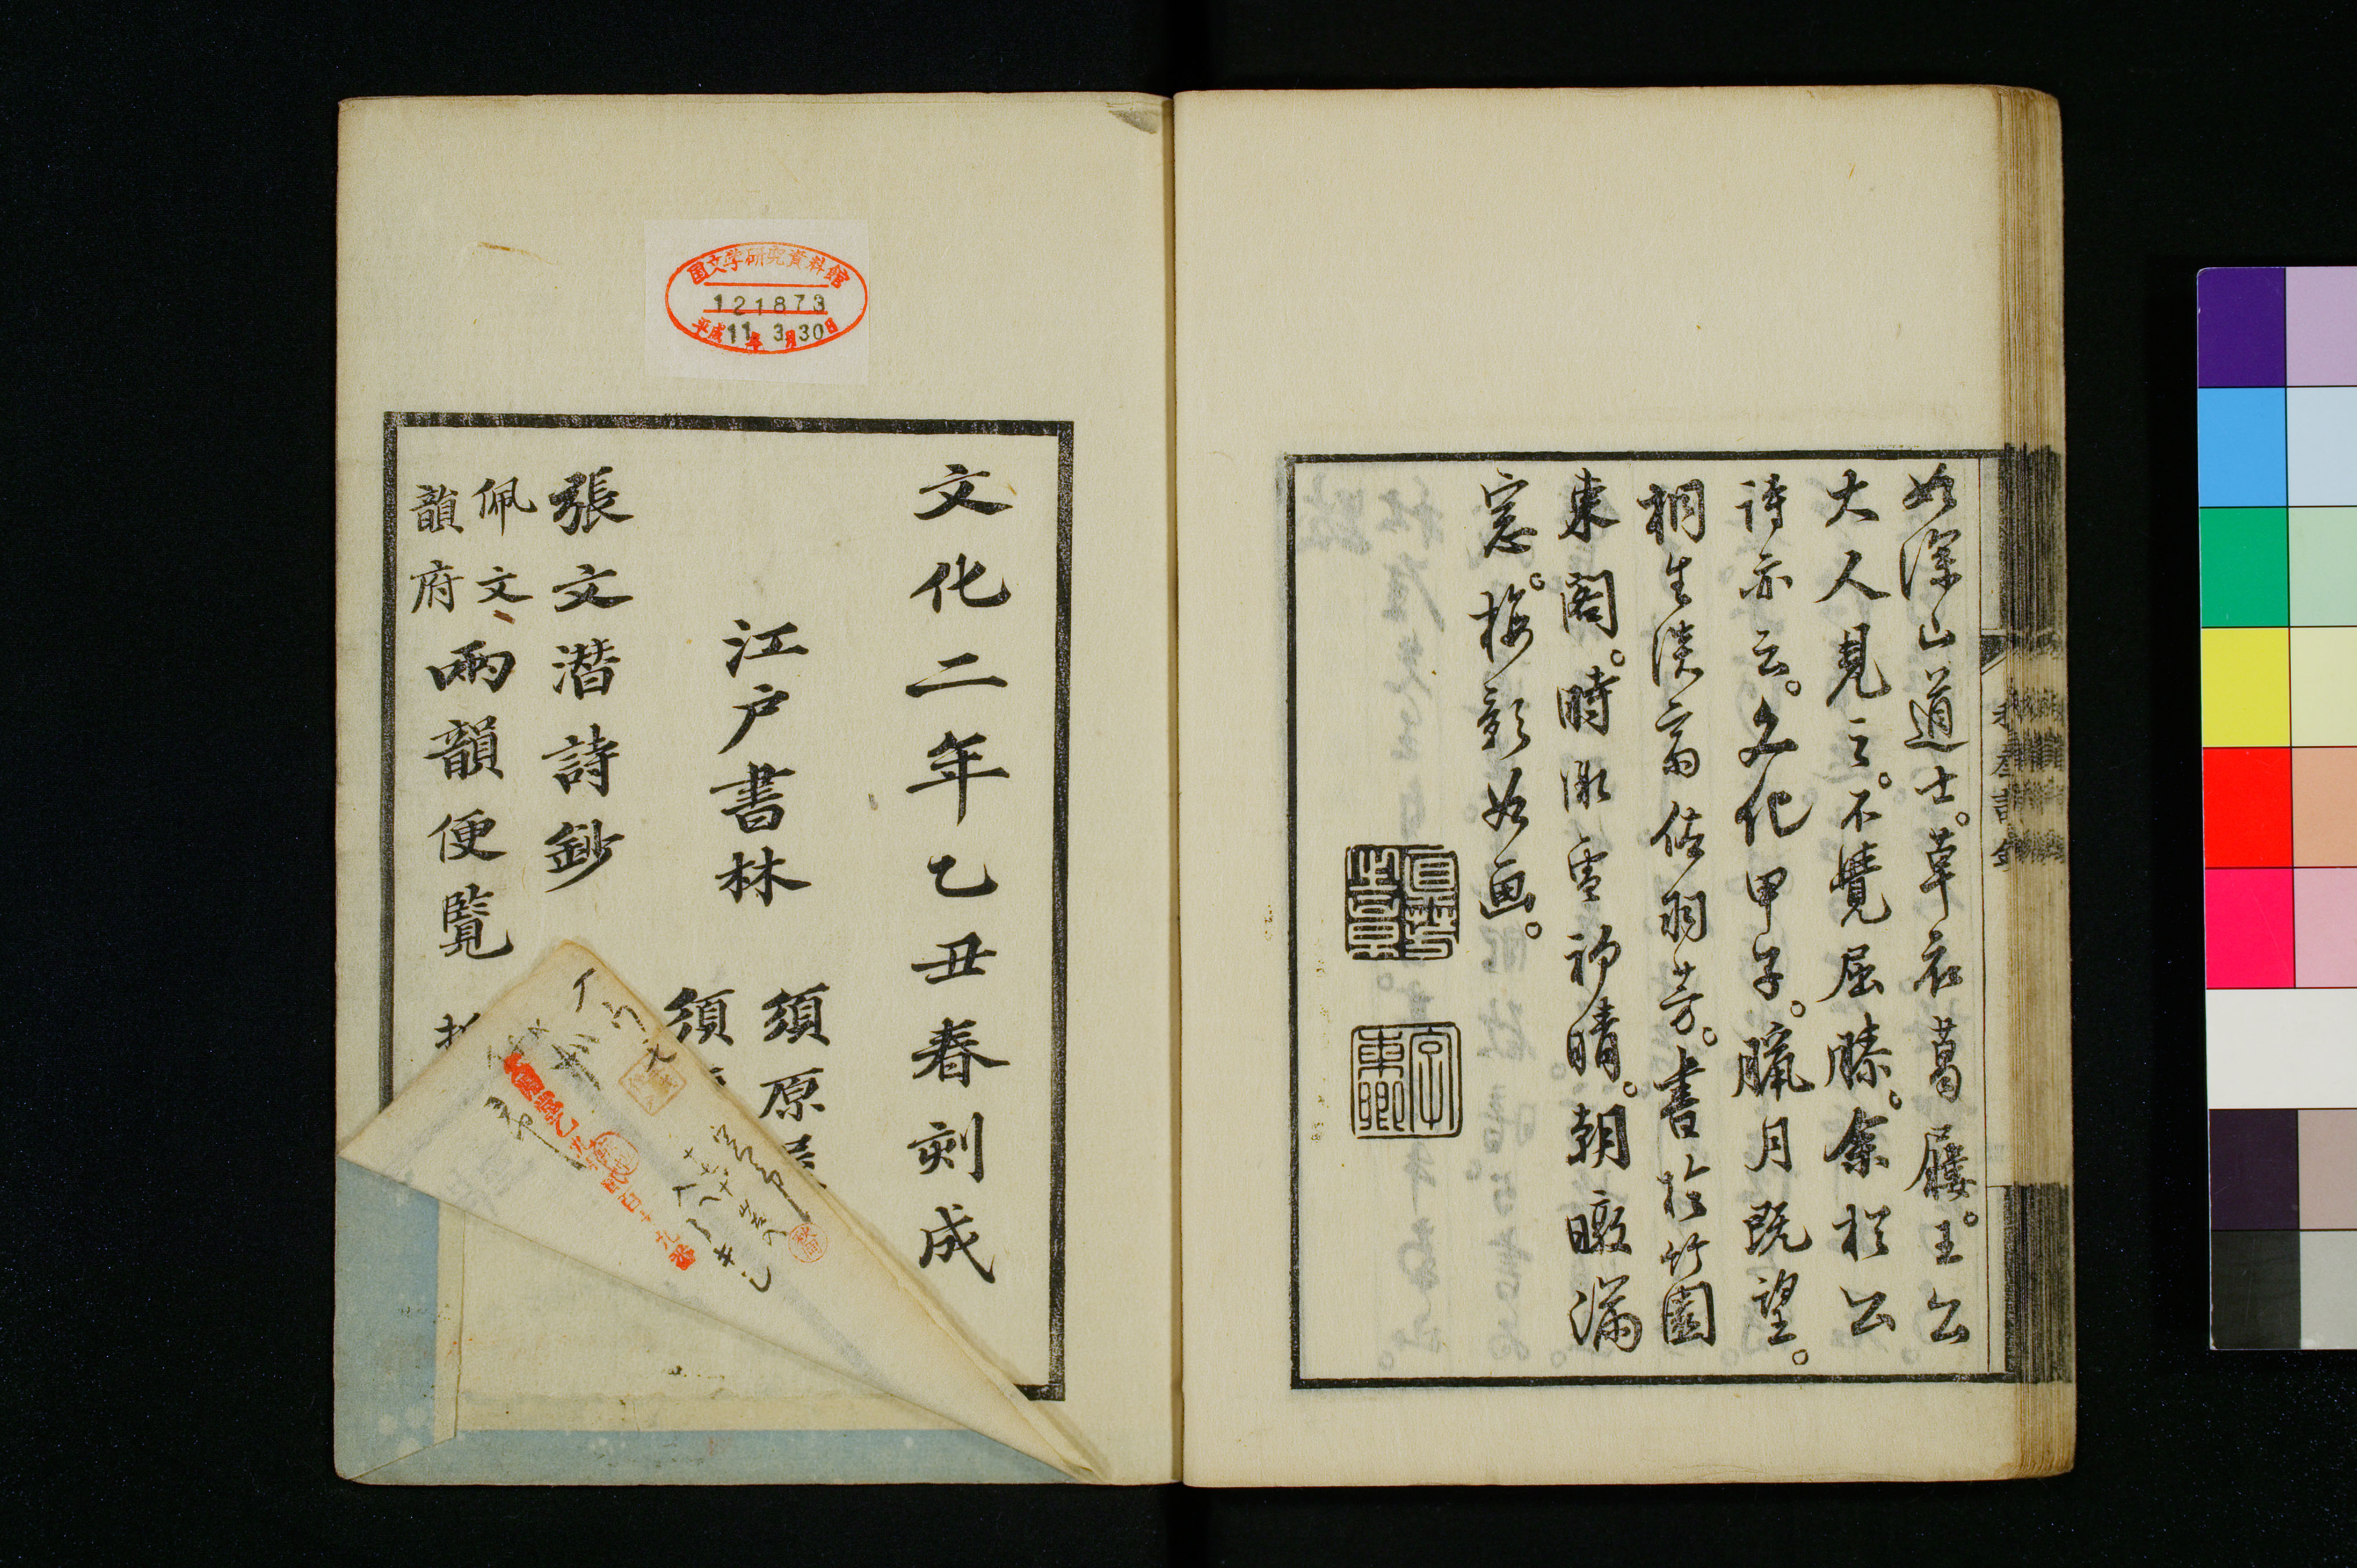 如深山道士。草衣葛屨。王公
大人見之。不覺屈膝。余於公
詩亦云。文化甲子。臘月既望。
桐生淡齋佐羽芳。書於竹園
東閣。時微雪初晴。朝暾滿
窓。梅影如画。
文化二年乙丑春刻成
江戸書林
須原屋
須
張文潜詩鈔
佩文
韻府
兩韻便覧
国文学研究資料館
121873
平成11年3月30日